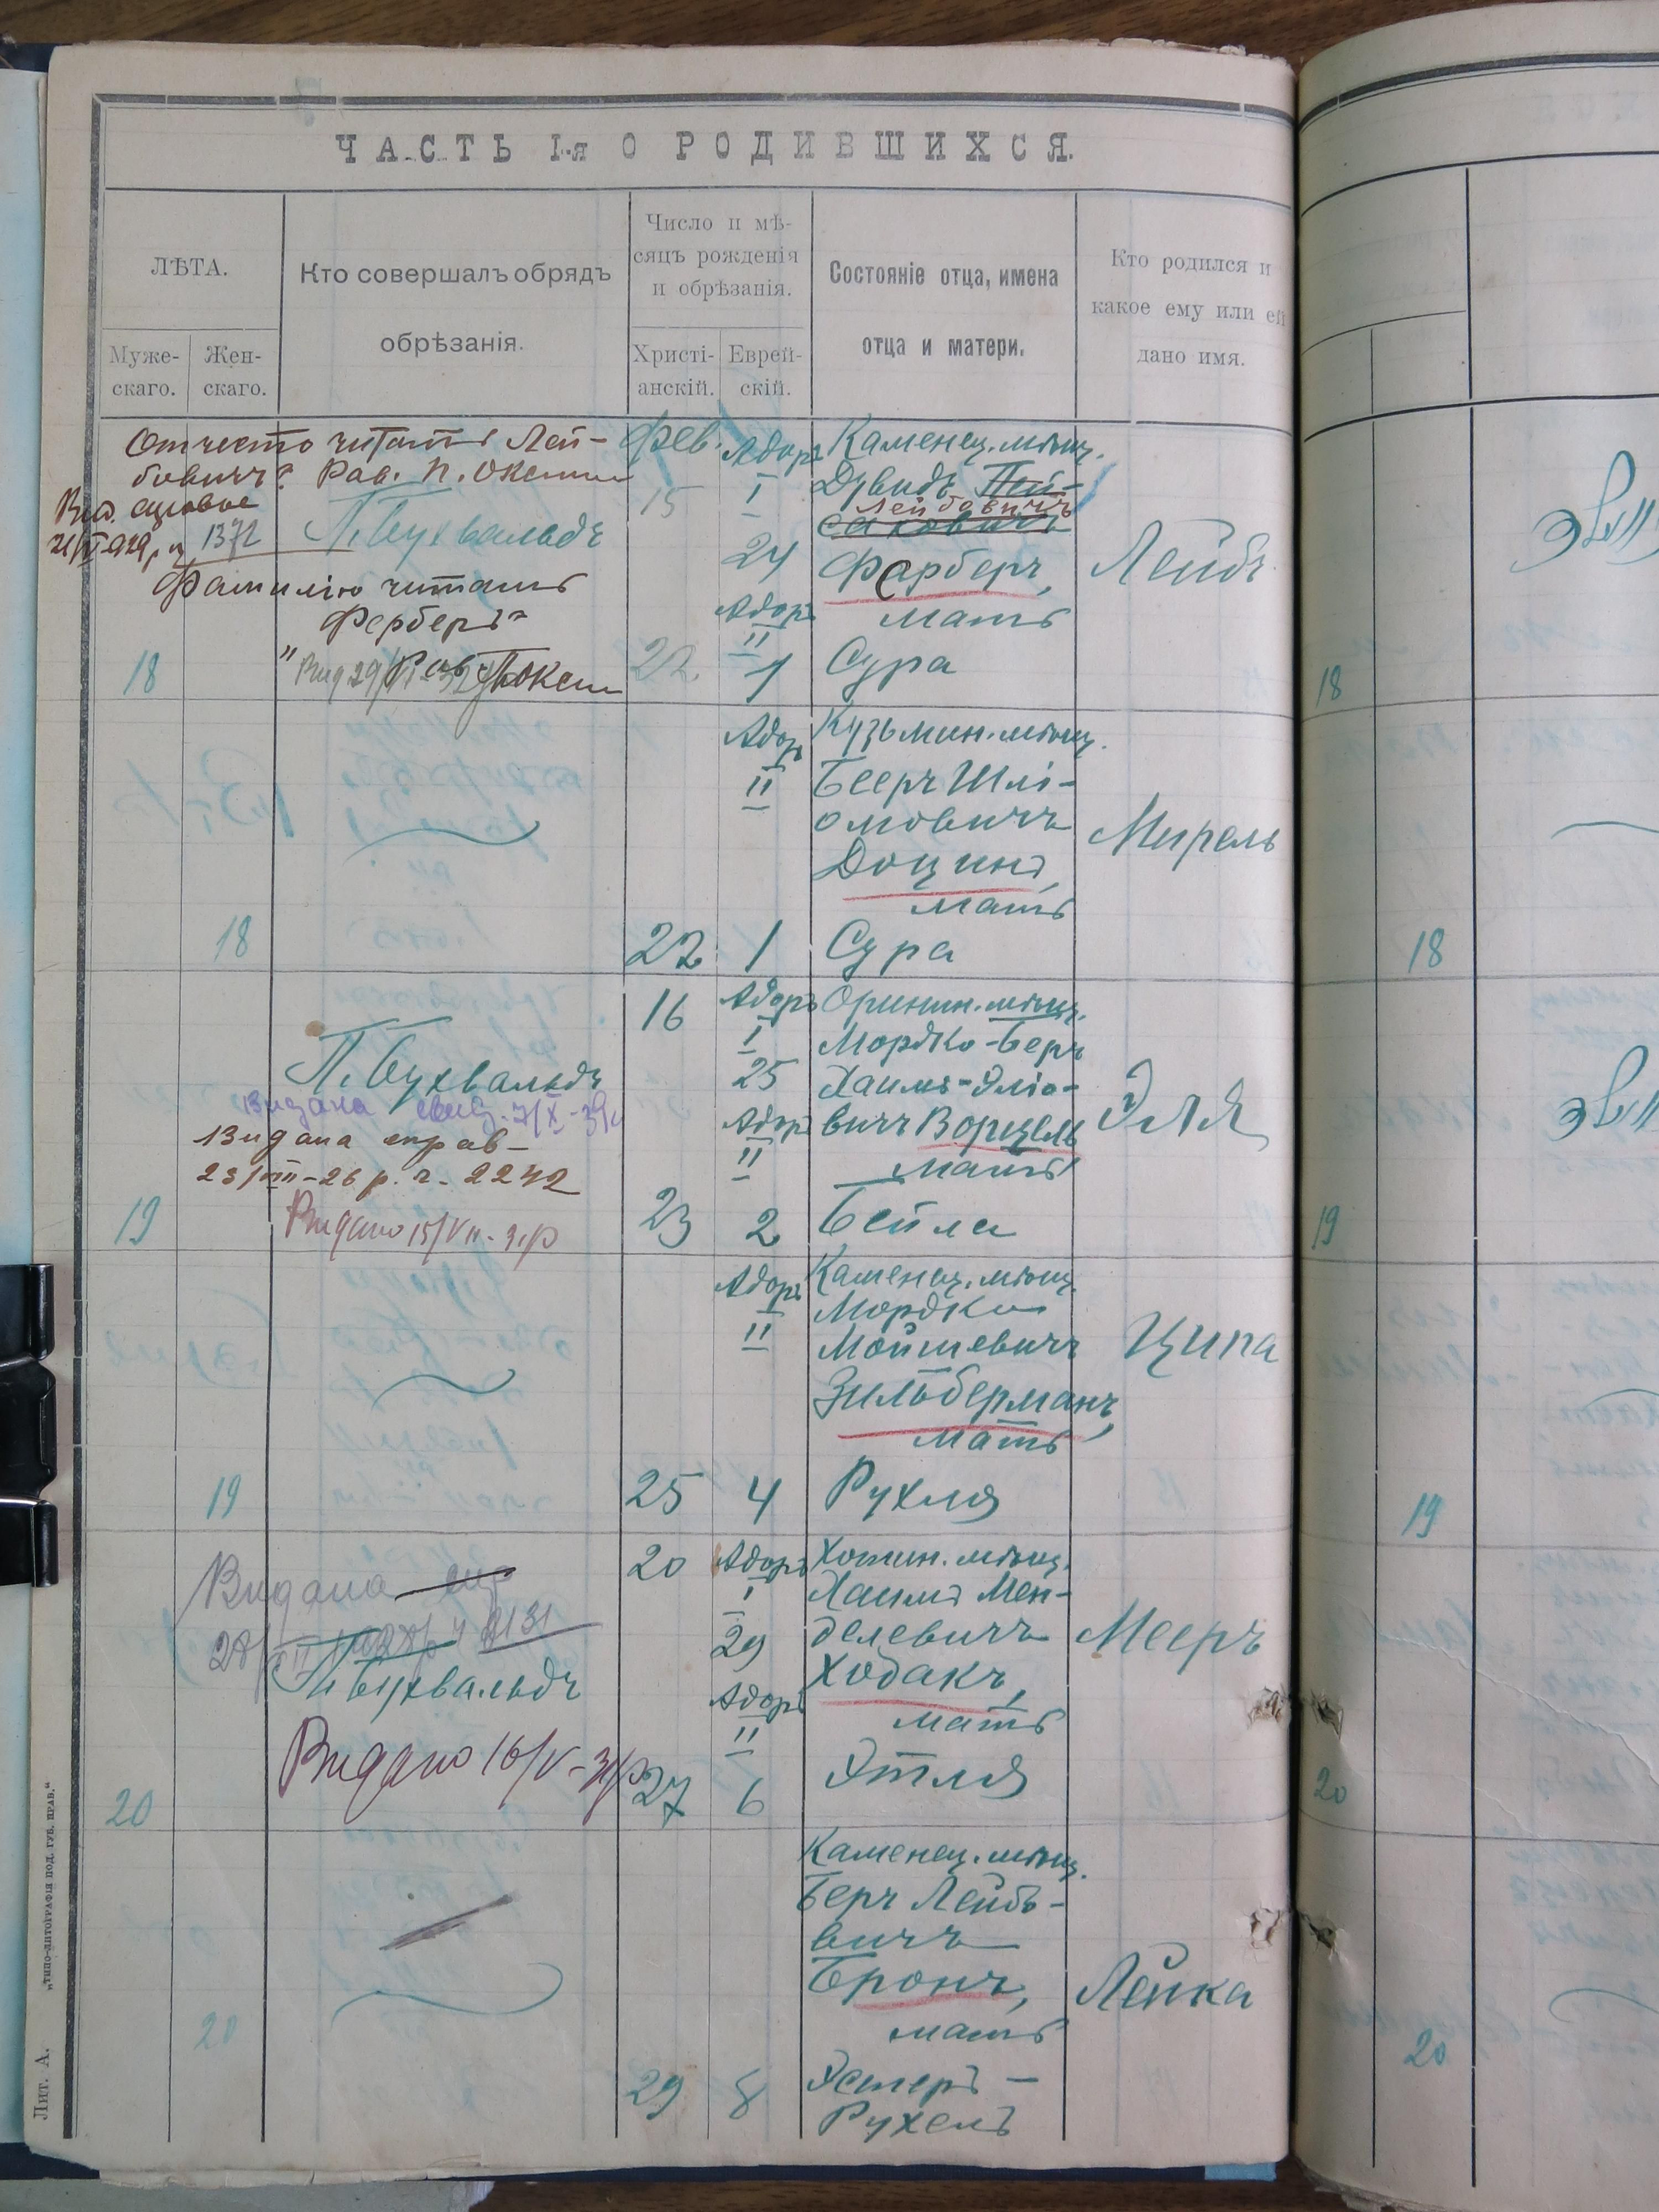 ЧАСТЬ I-я О РОДИВШИХСЯ.
ЛѢТА.
Муже-
скаго.
Жен-
скаго.
Кто совершалъ обрядъ
обрѣзанія.
Число и мѣ-
сяцъ рожденія
и обрѣзанія.
Христі-
анскій.
Еврей-
скій.
Состояніе отца, имена
отца и матери.
Кто родился и
какое ему или ей
дано имя.
Отчество читать Лей-
бовичъ
Рав.
1372
П. Бухвальдъ
Фамилію читать
Ферберъ
18
Фев.
15
22
Адаръ
I
24
Адаръ
II
1
Каменец. мѣщ.
Дувидъ Пей-
Лейбовичъ
саховичъ
Фарберъ,
мать
Сура
Лейбъ
18
18
22
Адаръ
II
1
Кузьмин. мѣщ.
Бееръ Шлі-
омовичъ
Доцинъ,
мать
Сура
Мирель
18
П. Бухвальдъ
Видана справ-
23/VIII-26 р. ч. 2242
Видано 15/VII-31р
19
16
23
Адаръ
I
25
Адаръ
II
2
Оринин. мѣщ.
Мордко-Беръ
Хаимъ-Эліо-
вичъ Ворцель
мать
Бейла
Эля
19
19
25
Адаръ
II
4
Каменец. мѣщ.
Мордко
Мойшевичъ
Зильберманъ,
мать
Рухля
Ципа
19
Видана
2131
П. Бухвальдъ
Видано 16/V-31р
20
20
27
Адаръ
I
29
Адаръ
II
6
Хотин. мѣщ.
Хаимъ Мен-
делевичъ
Ходакъ,
мать
Этля
Мееръ
20
20
29
8
Каменец. мѣщ.
Беръ Лейбо-
вичъ
Бронъ,
мать
Эстеръ-
Рухель
Лейка
20
Лит. А.
„типо-литографія под. губ. прав."